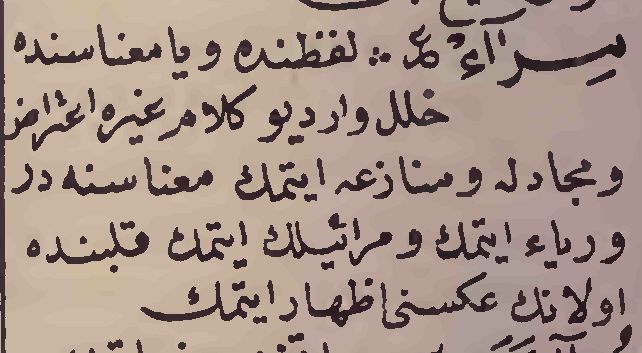 مِرَآءٌ عر لفظنده ويا معناسنده
خلل واردیو كلام غيره اعتراض
ومجادله ومنازعه ايتمك معناسنه در
ورياء ايتمك ومرائيلك ايتمك قلبنده
اولانك عكسنى اظهار ايتمك